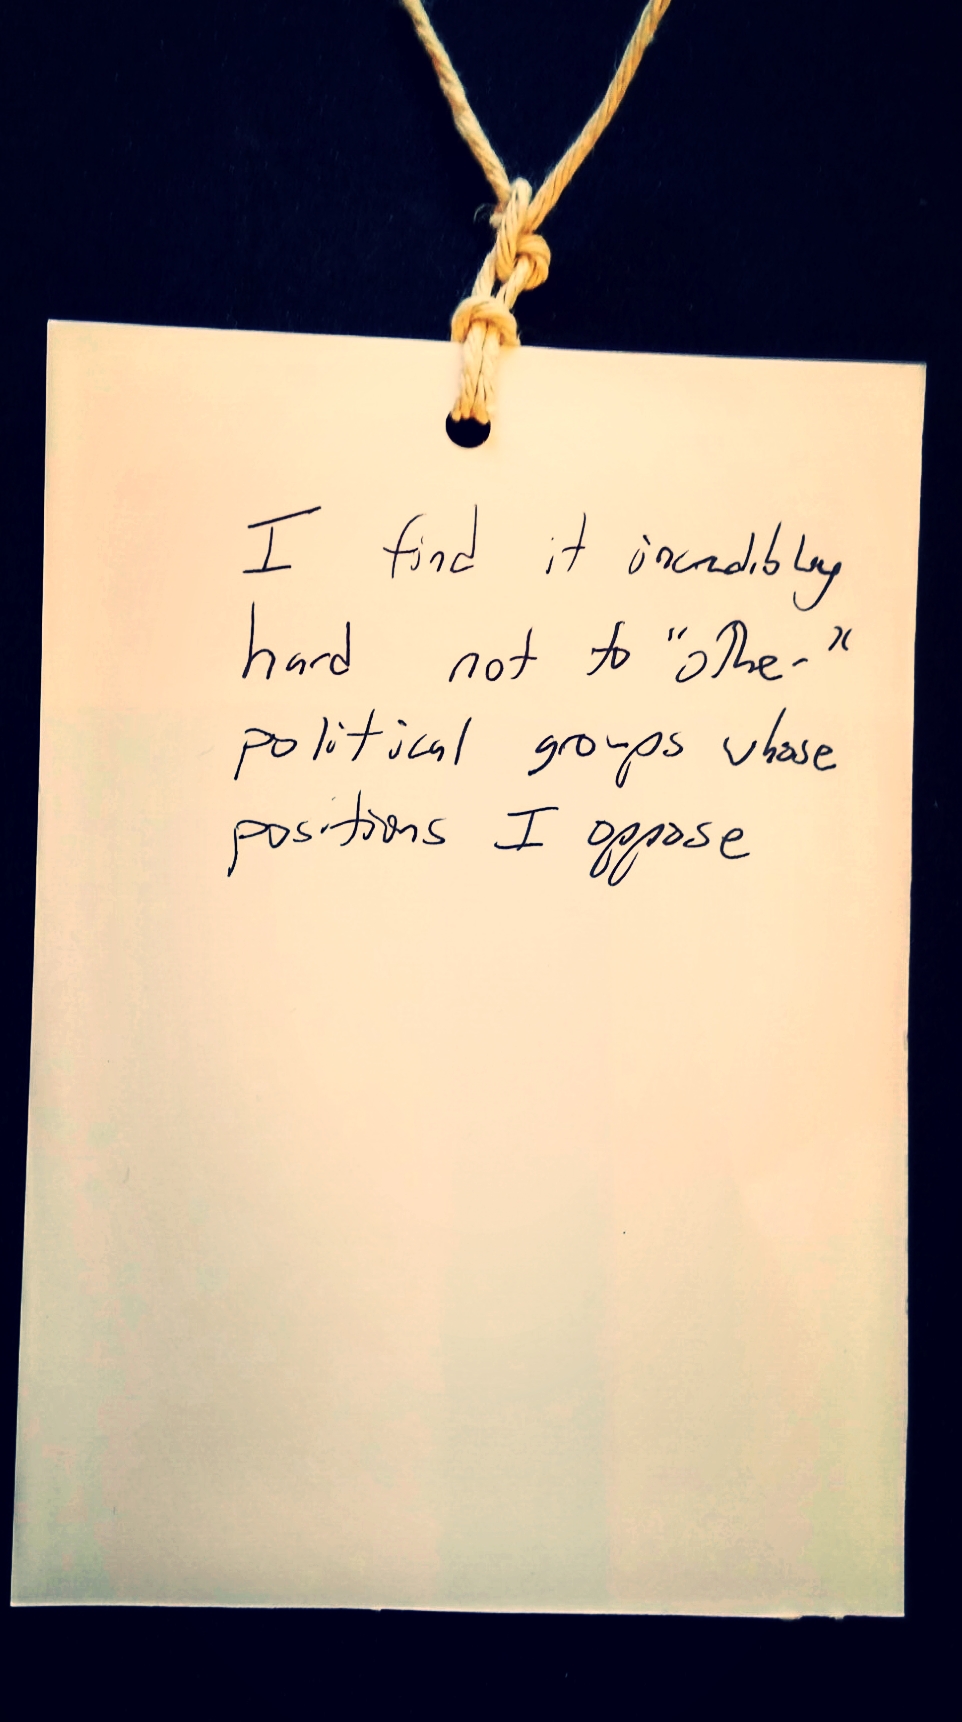 I find it incredibly
hard not to "other"
political groups whose
positions I oppose